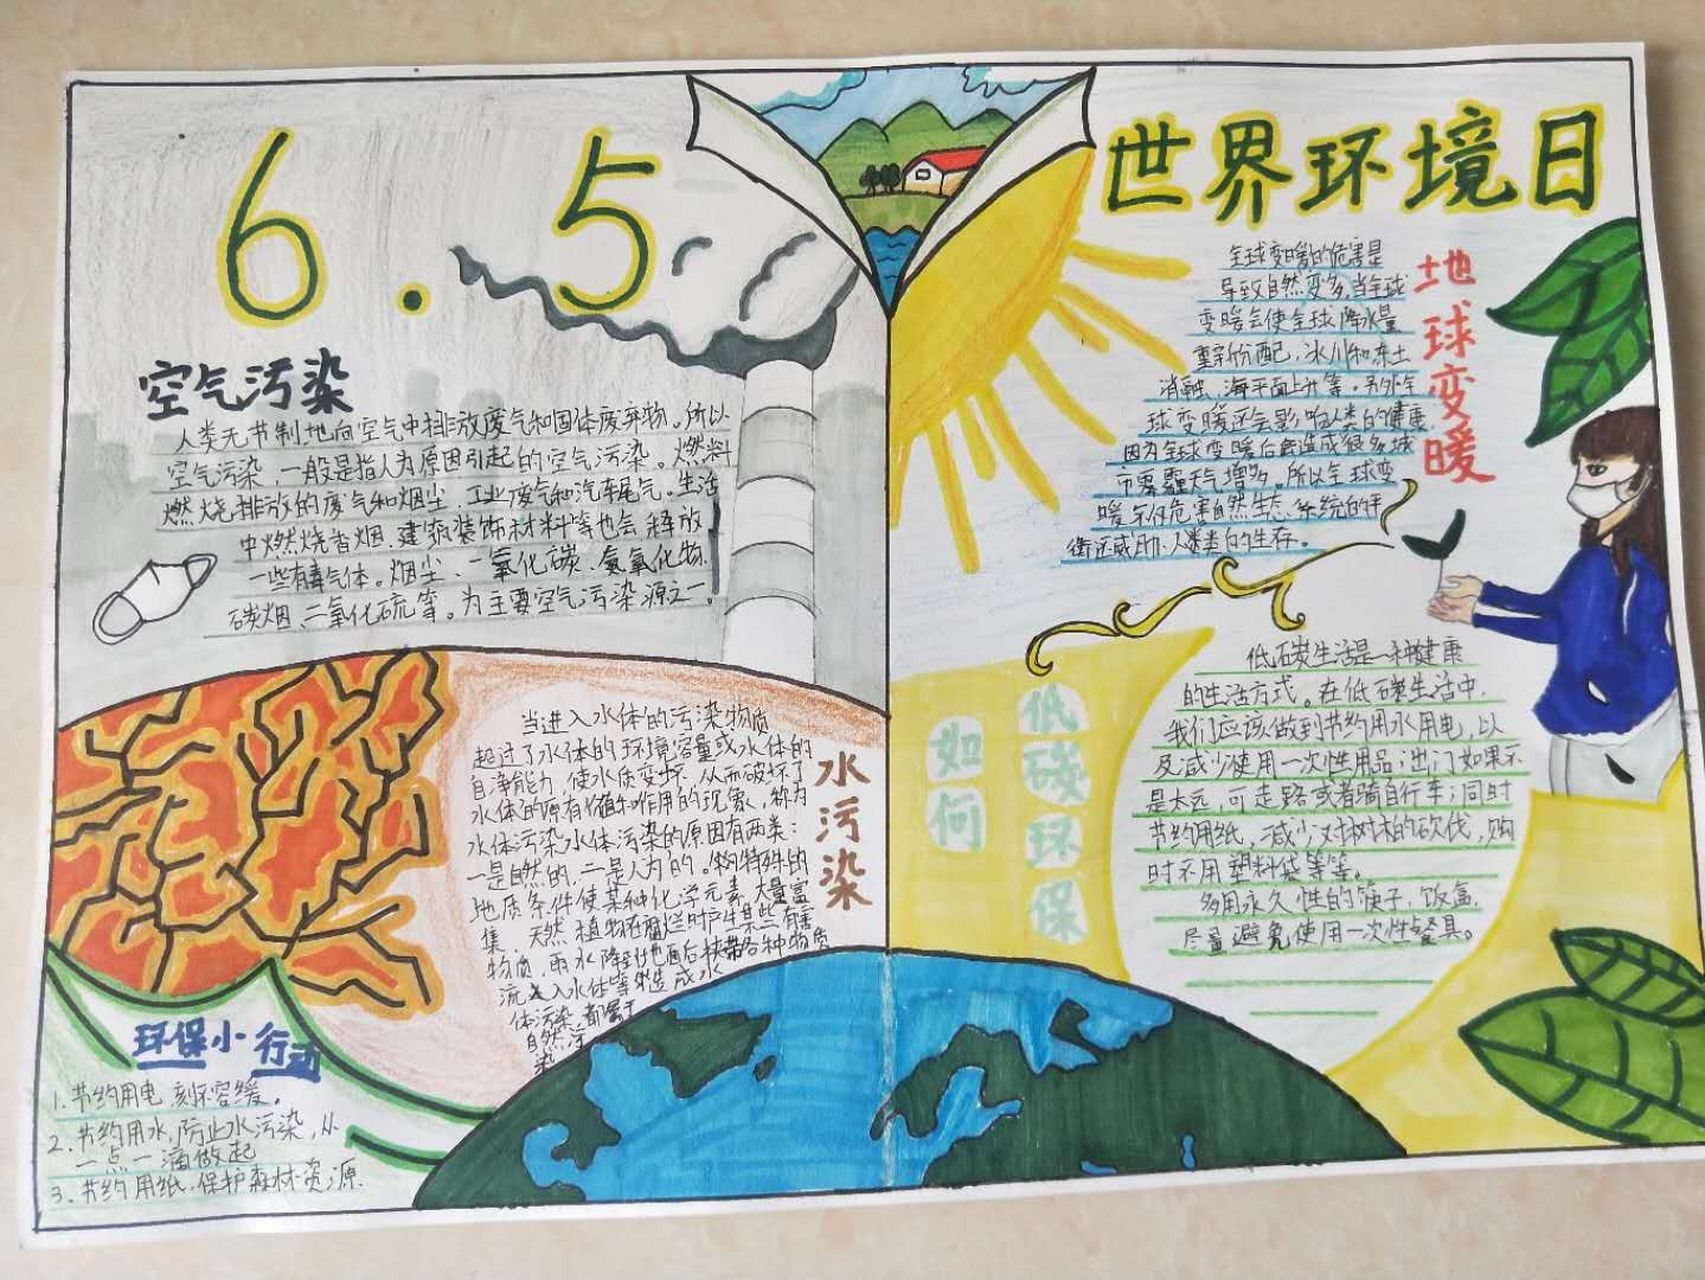 6.5
世界环境日
空气污染
人类无节制地向空气中排放废气和固体废弃物。所以
空气污染，一般是指人为原因引起的空气污染。燃料
燃烧排放的废气和烟尘、工业废气和汽车尾气。生活
中燃烧香烟、建筑装饰材料等也会释放
一些有毒气体。烟尘、一氧化碳、氮氧化物、
碳烟、二氧化硫等。为主要空气污染源之一。
地球变暖
全球变暖的危害是
导致自然变多，当全球
变暖会使全球降水量
重新份配，冰川和冻土
消融、海平面上升等。另外全
球变暖还会影响人类的健康，
因为全球变暖后会造成很多城
市雾霾天气增多。所以全球变
暖不仅危害自然生态系统的平
衡还威胁人类的生存。
水污染
当进入水体的污染物质
超过了水体的环境容量或水体的
自净能力，使水质变坏，从而破坏了
水体的原有价值和作用的现象，称为
水体污染水体污染的原因有两类：
一是自然的，二是人为的。特殊的
地质条件使某种化学元素大量富
集、天然植物在腐烂时产生某些有害
物质、雨水降到地面后挟带各种物质
流入水体等造成水
体污染都属于
自然污
染
如何
低碳环保
低碳生活是一种健康
的生活方式。在低碳生活中，
我们应该做到节约用水用电，以
及减少使用一次性用品；出门如果不
是太远，可走路或者骑自行车；同时
节约用纸，减少对树木的砍伐，购
时不用塑料袋等等。
多用永久性的筷子，饭盒，
尽量避免使用一次性餐具。
环保小行动
1.节约用电，刻不容缓。
2.节约用水，防止水污染，从
一点一滴做起
3.节约用纸，保护森林资源.